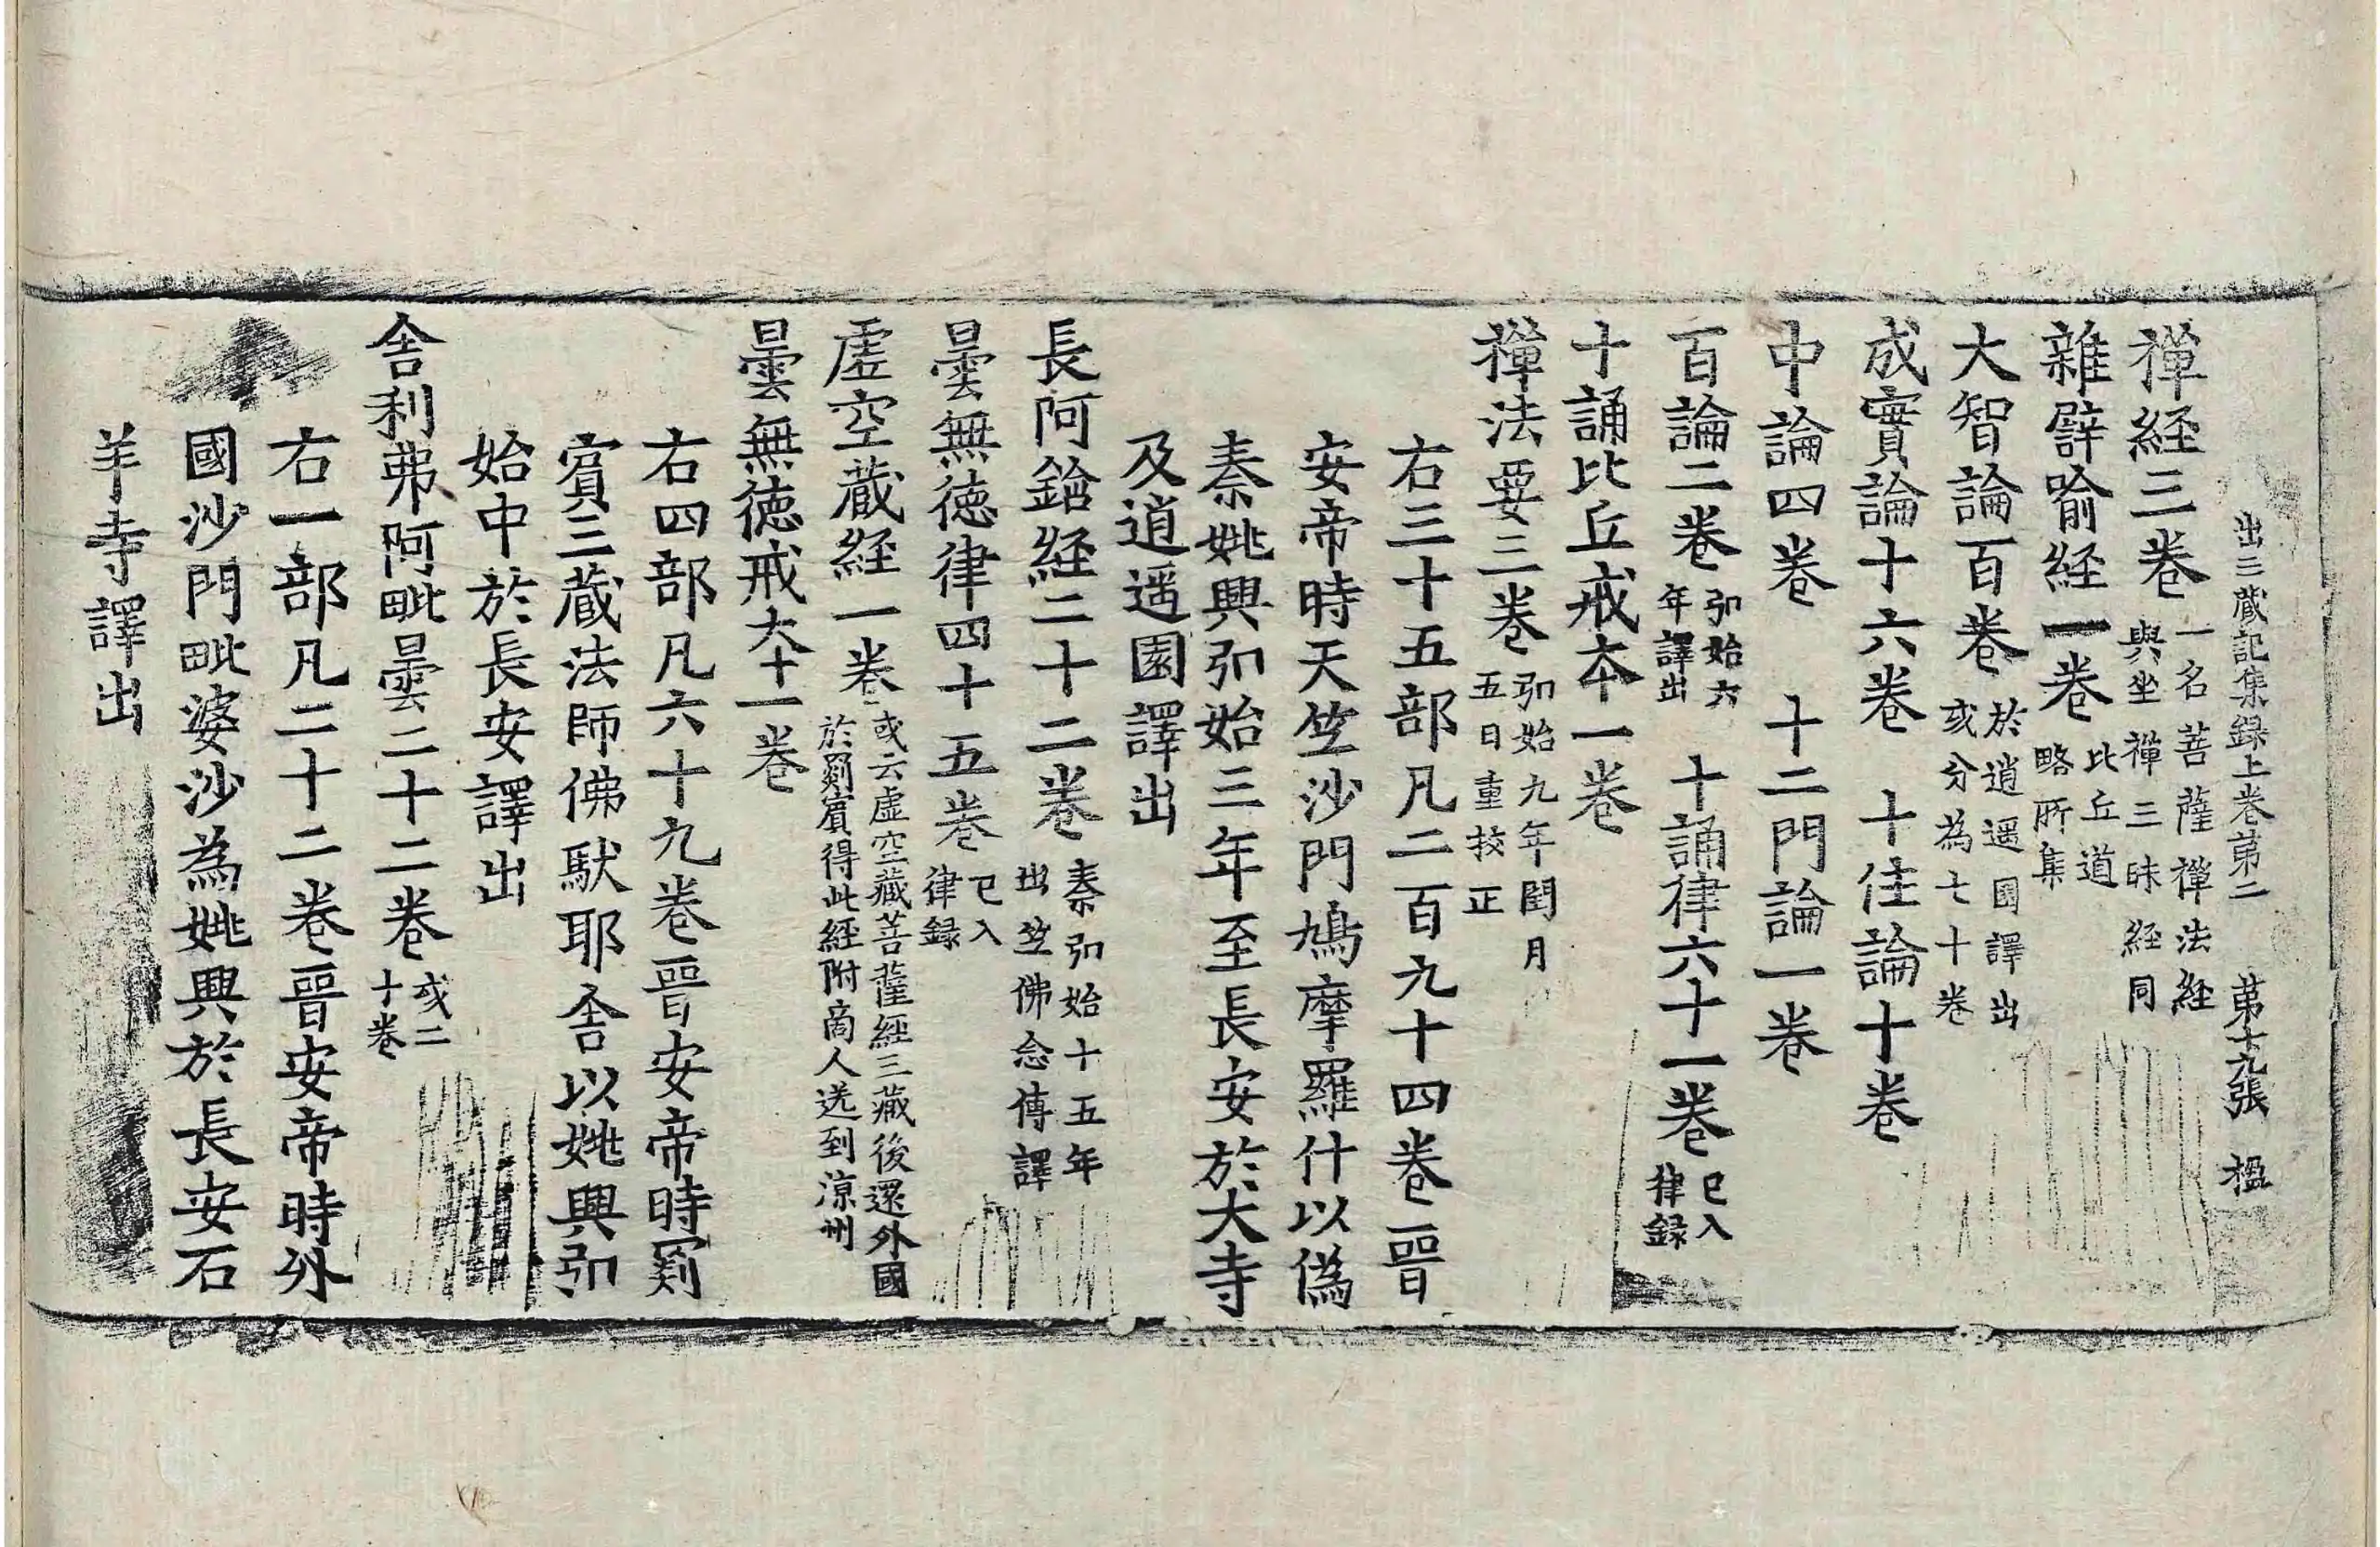 出三藏記集録上卷第二　第十九張　楹
禪經三卷 一名菩薩禪法經與坐禪三昧經同
雜譬喻經一卷 比丘道略所集
大智論百卷 於逍遥園譯出或分為七十卷
成實論十六卷　十住論十卷
中論四卷　十二門論一卷
百論二卷 弘始六年譯出　十誦律六十一卷 已入律録
十誦比丘戒本一卷
禪法要三卷 弘始九年閏月五日重挍正
右三十五部凡二百九十四卷晋
安帝時天竺沙門鳩摩羅什以偽
秦姚興弘始三年至長安於大寺
及逍遥園譯出
長阿鋡經二十二卷 秦弘始十五年出竺佛念傳譯
曇無徳律四十五卷 已入律録
虛空藏經一卷 或云虛空藏菩薩經三藏後還外國於罽賓得此經附商人送到涼州
曇無徳戒本一卷
右四部凡六十九卷晋安帝時罽
賓三藏法師佛馱耶舍以姚興弘
始中於長安譯出
舍利弗阿毗曇二十二卷 或二十卷
右一部凡二十二卷晋安帝時外
國沙門毗婆沙為姚興於長安石
羊寺譯出